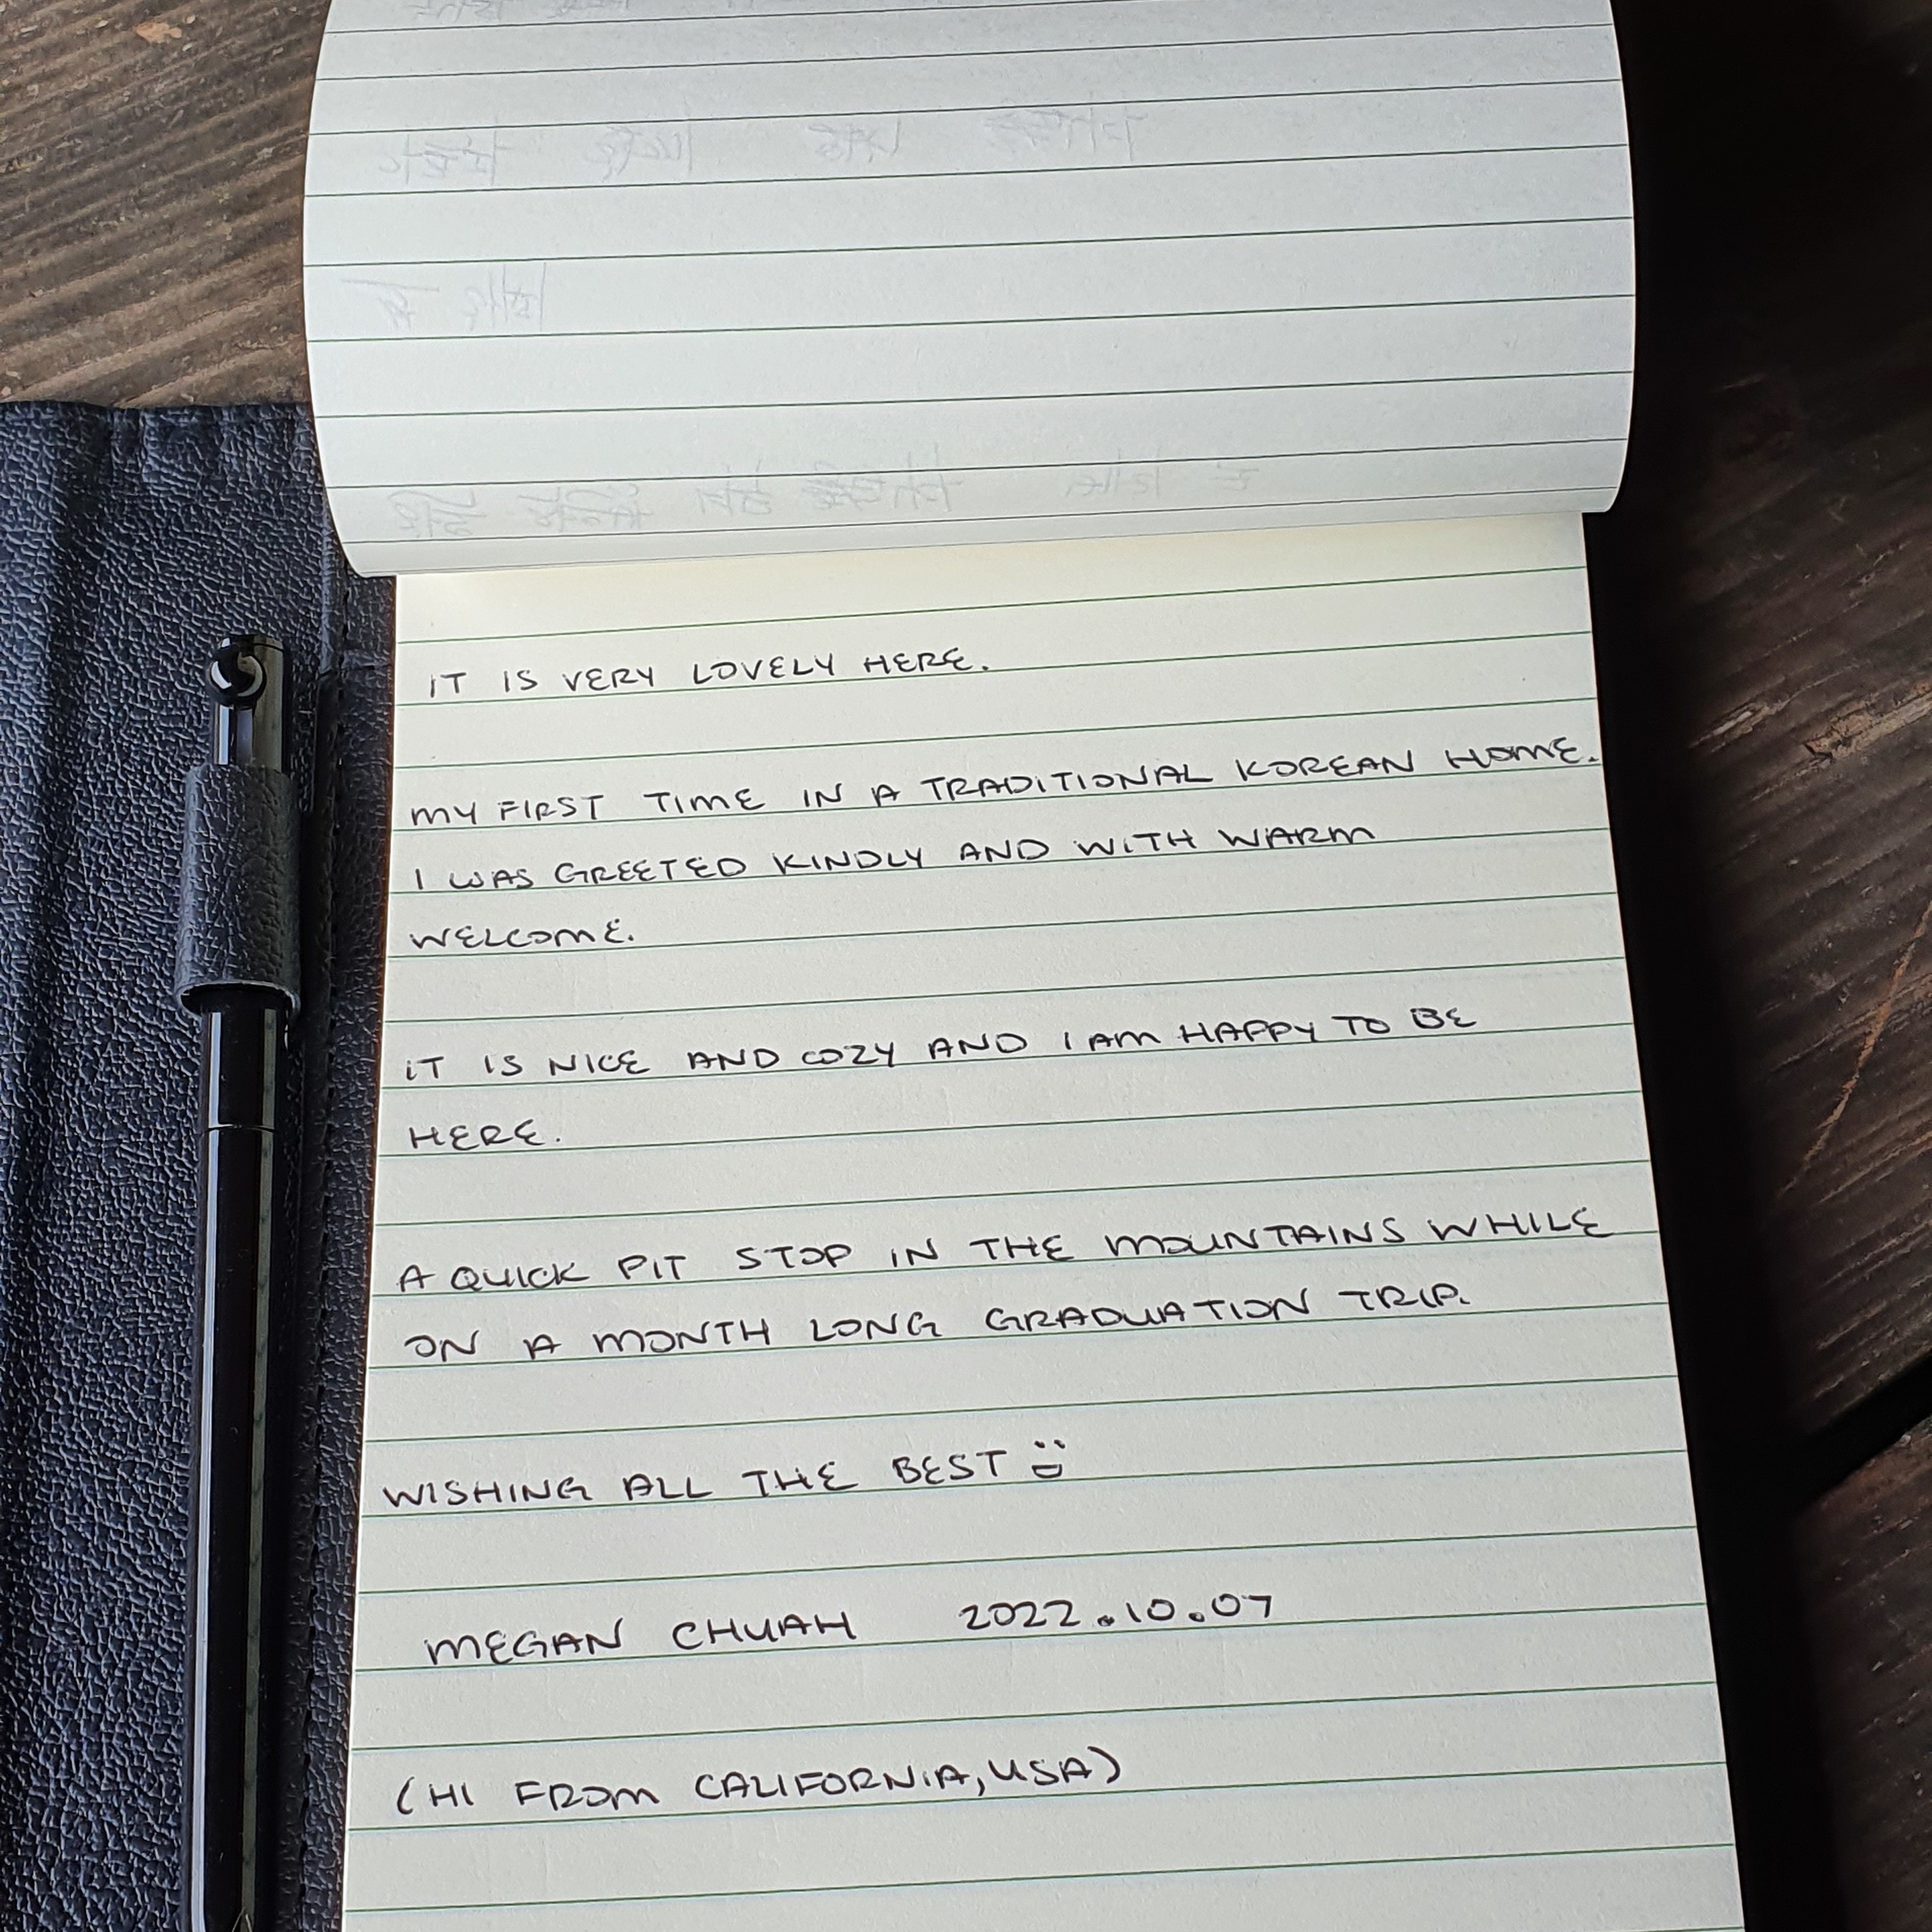 IT IS VERY LOVELY HERE.
MY FIRST TIME IN A TRADITIONAL KOREAN HOME.
I WAS GREETED KINDLY AND WITH WARM
WELCOME.
IT IS NICE AND COZY AND I AM HAPPY TO BE
HERE.
A QUICK PIT STOP IN THE MOUNTAINS WHILE
ON A MONTH LONG GRADUATION TRIP.
WISHING ALL THE BEST
MEGAN CHUAH 2022.10.07
(HI FROM CALIFORNIA, USA)